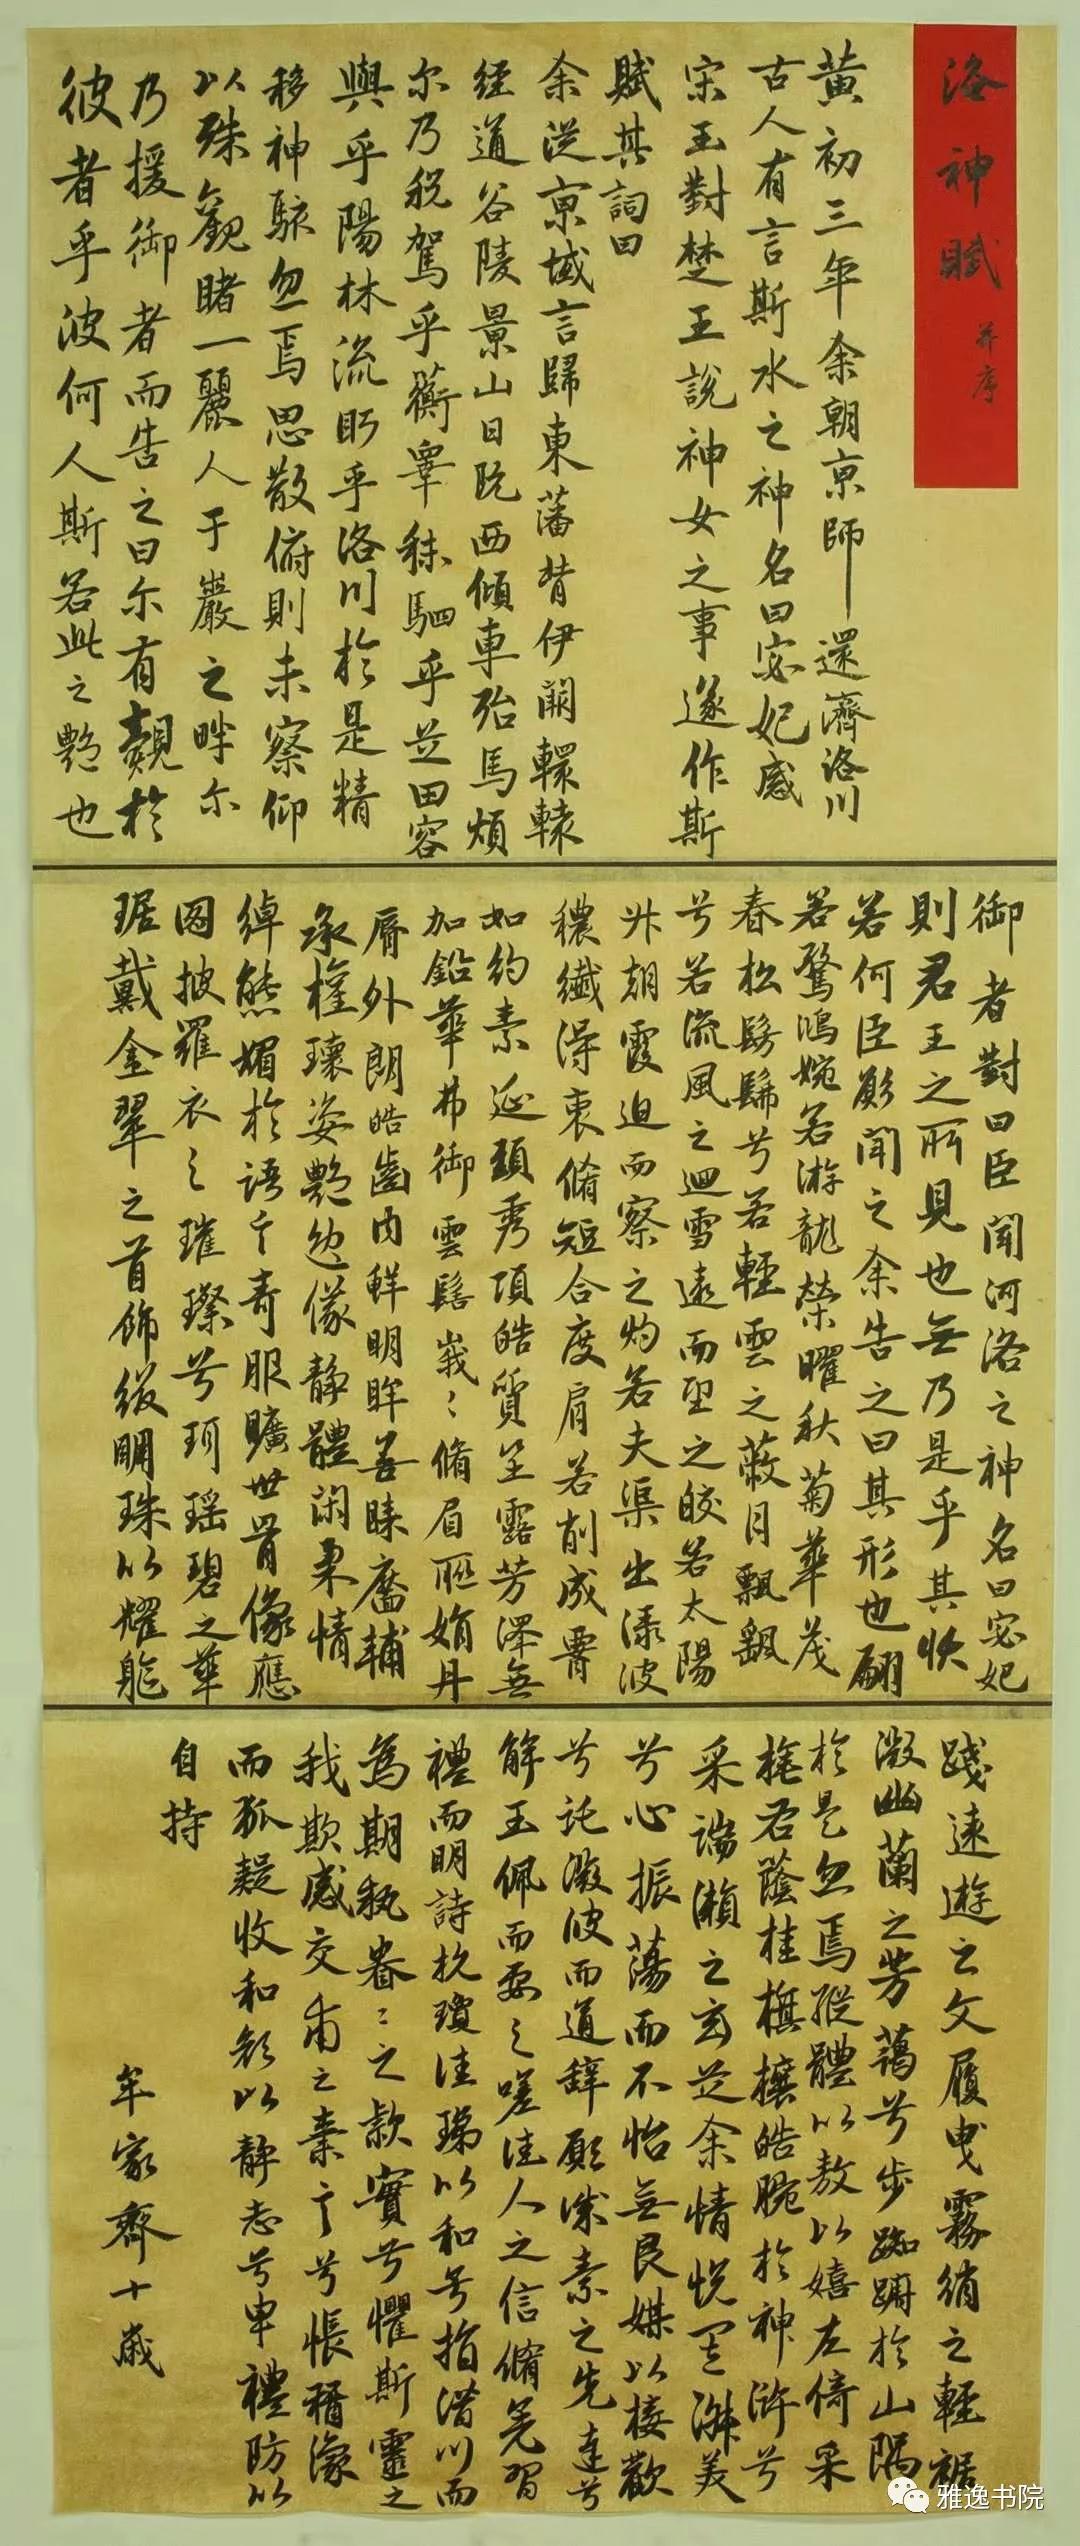 洛神賦 并序
黄初三年余朝京師還濟洛川
古人有言斯水之神名曰宓妃感
宋玉對楚王說神女之事遂作斯
賦其詞曰
余從京域言歸東藩背伊闕轘轅
經通谷陵景山日既西傾車殆馬煩
尔乃税駕乎蘅皋秣駟乎芝田容
與乎陽林流眄乎洛川於是精
移神駭忽焉思散俯則未察仰
以殊觀睹一麗人于巖之畔尔
乃援御者而告之曰尔有觌於
彼者乎彼何人斯若此之艷也
御者對曰臣聞河洛之神名曰宓妃
則君王之所見也無乃是乎其狀
若何臣願聞之余告之曰其形也翩
若驚鴻婉若游龍榮曜秋菊華茂
春松髣髴兮若輕雲之蔽月飄飖
兮若流風之迴雪遠而望之皎若太陽
升朝霞迫而察之灼若夫渠出渌波
穠纖得衷脩短合度肩若削成腰
如約素延頸秀項皓質呈露芳澤無
加鉛華弗御雲髻峩〻脩眉聯娟丹
脣外朗皓齒内鮮明眸善睞靨輔
承權瓌姿艷逸儀静體閑柔情
綽態媚於語言奇服曠世骨像應
圖披羅衣之璀璨兮珥瑶碧之華
琚戴金翠之首飾綴明珠以耀軀
踐遠遊之文履曳霧綃之輕裾
微幽蘭之芳藹兮步踟蹰於山隅
於是忽焉縱體以敖以嬉左倚采
旄右蔭桂旗攘皓腕於神滸兮
采湍瀨之玄芝余情悦其淑美
兮心振蕩而不怡無良媒以接歡
兮託微波而通辭願誠素之先達兮
解玉佩而要之嗟佳人之信脩羌習
禮而明詩抗瓊珶以和兮指潛川而
為期執眷〻之款實兮懼斯靈之
我欺感交甫之棄言兮悵猶豫
而狐疑收和顔以静志兮申禮防以
自持
牟家齊十歲
雅逸书院